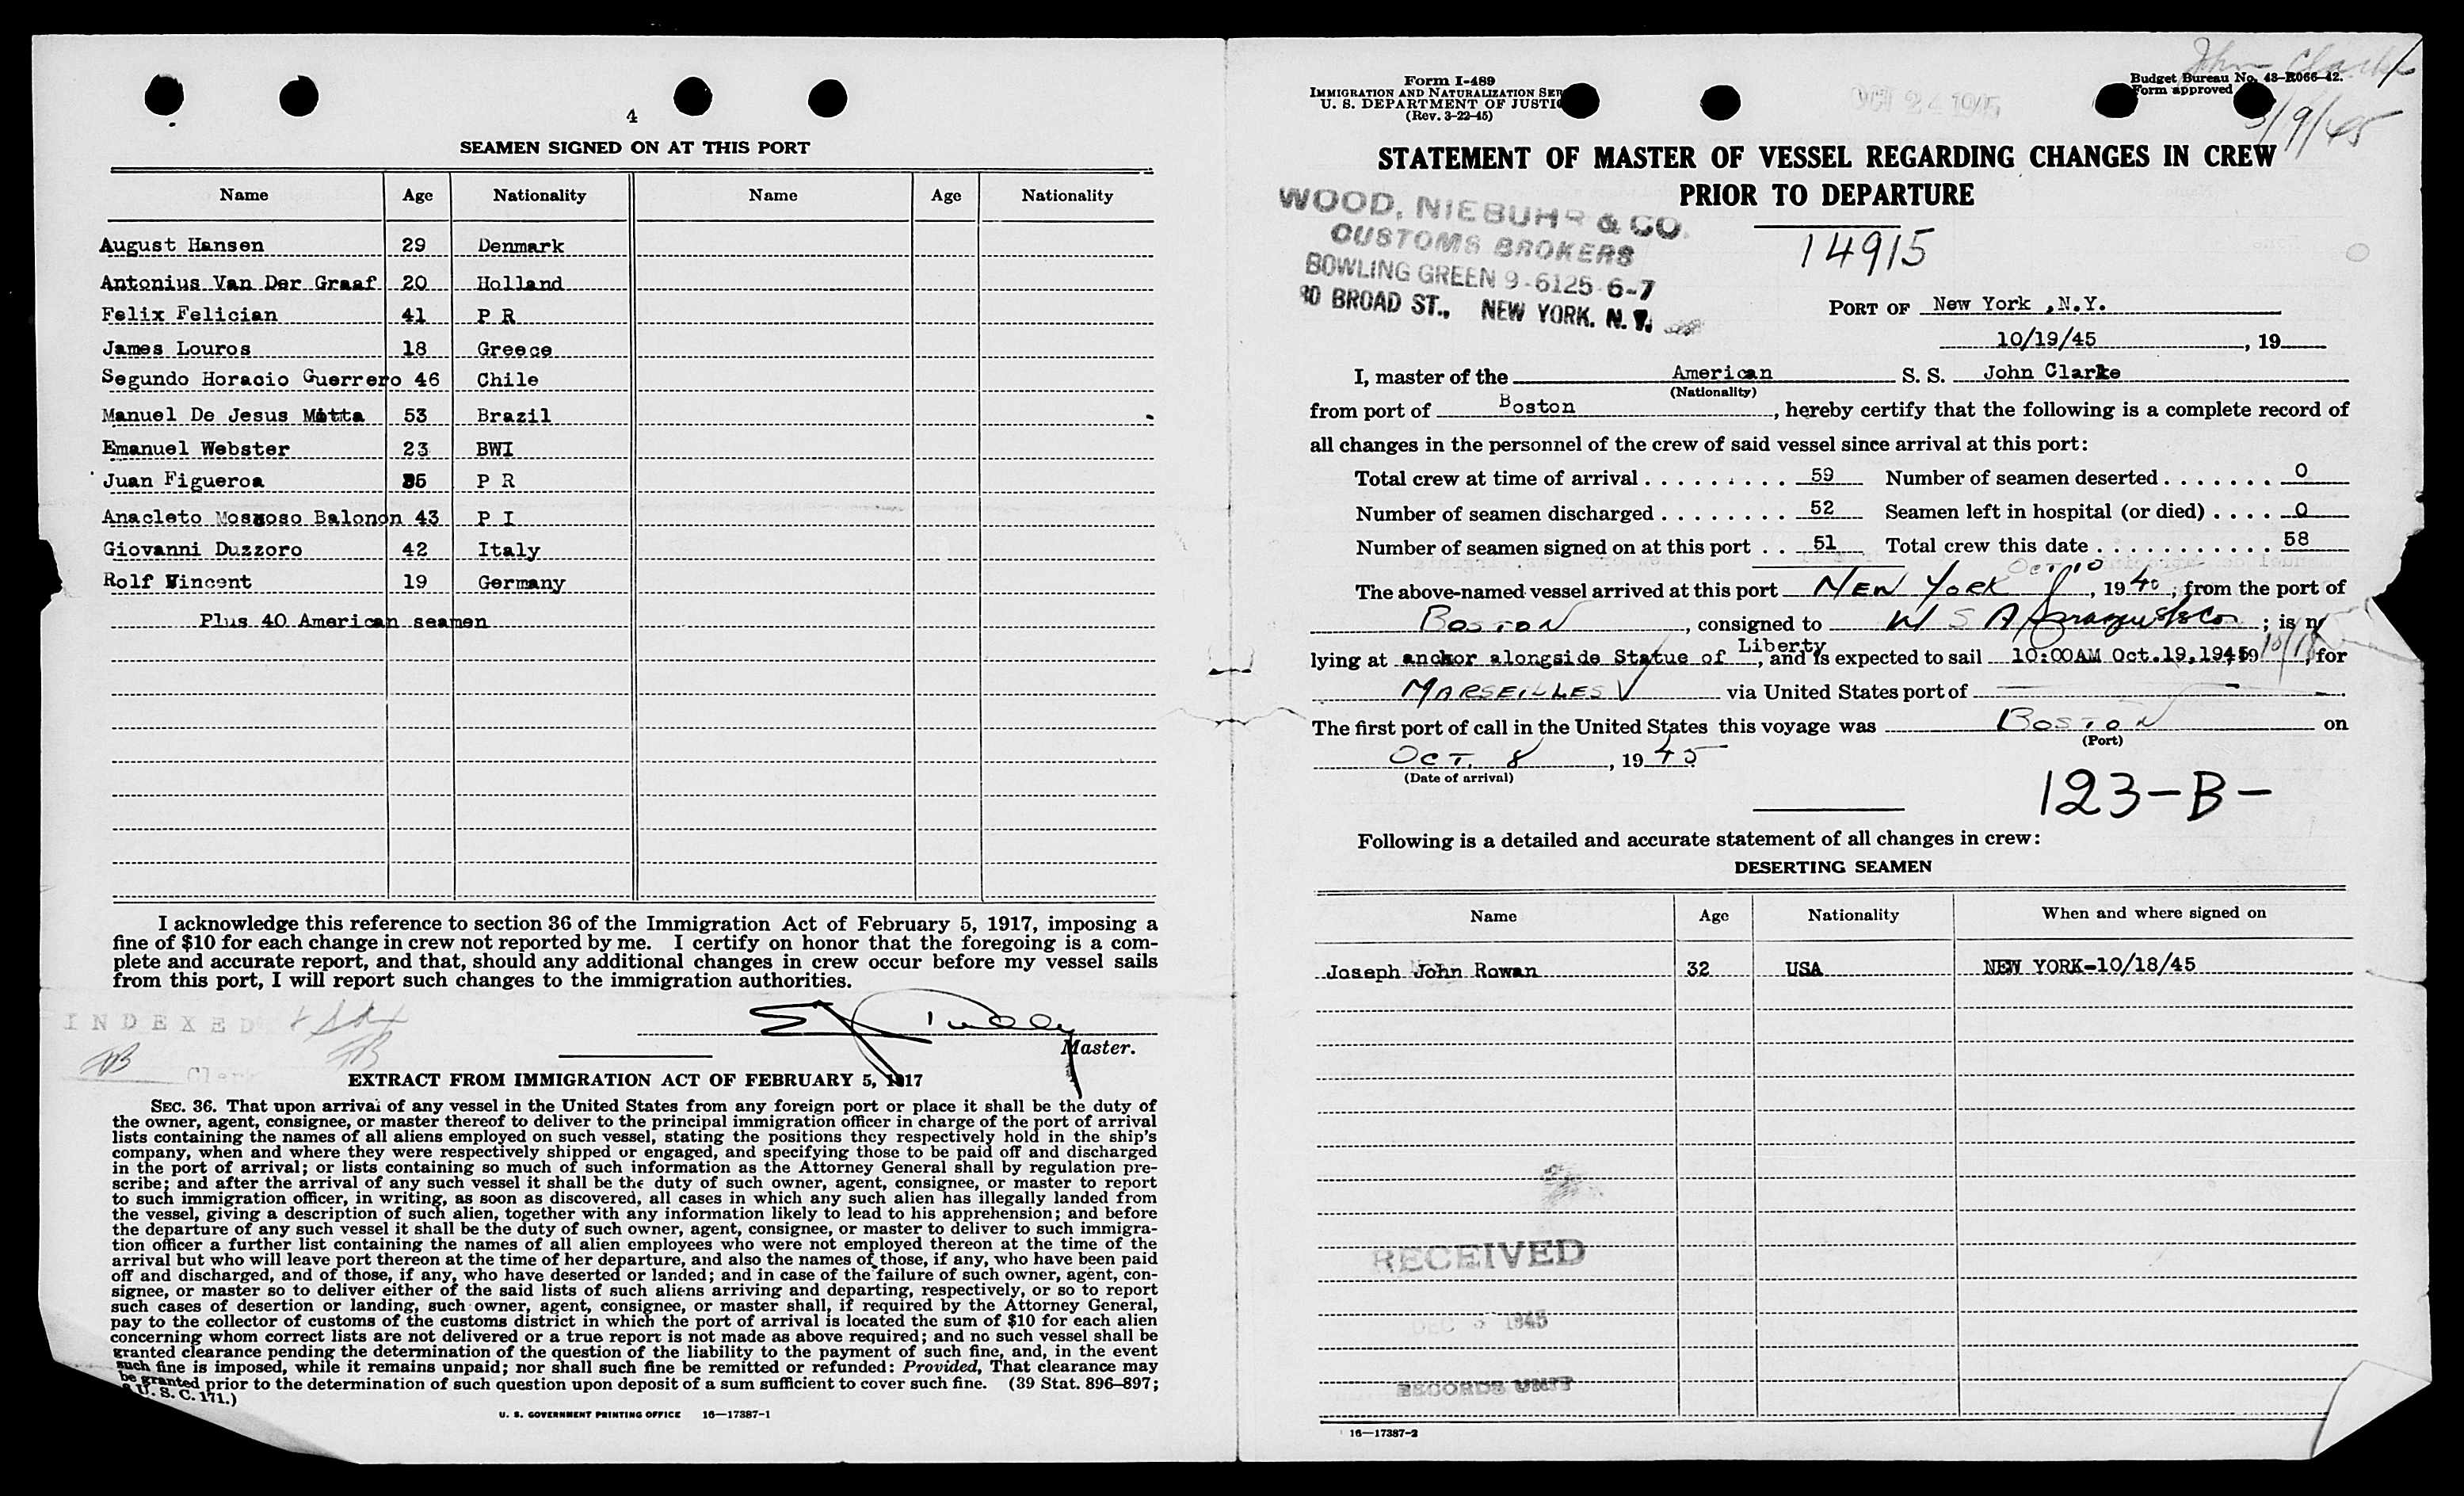 4
SEAMEN SIGNED ON AT THIS PORT
Name Age Nationality Name Age Nationality
August Hansen 29 Denmark
Antonius Van Der Graaf 20 Holland
Felix Felician 41 P R
James Louros 18 Greece
Segundo Horacio Guerrero 46 Chile
Manuel De Jesus Mitta 53 Brazil
Emanuel Webster 23 BWI
Juan Figueroa 35 P R
Anacleto Balonon 43 P I
Giovanni Duzzoro 42 Italy
Rolf Vincent 19 Germany
Plus 40 American seamen
I acknowledge this reference to section 36 of the Immigration Act of February 5, 1917, imposing a
fine of $10 for each change in crew not reported by me. I certify on honor that the foregoing is a com-
plete and accurate report, and that, should any additional changes in crew occur before my vessel sails
from this port, I will report such changes to the immigration authorities.
INDEXED
Master.
JB JB
Clerk
EXTRACT FROM IMMIGRATION ACT OF FEBRUARY 5, 1917
SEC. 36. That upon arrival of any vessel in the United States from any foreign port or place it shall be the duty of
the owner, agent, consignee, or master thereof to deliver to the principal immigration officer in charge of the port of arrival
lists containing the names of all aliens employed on such vessel, stating the positions they respectively hold in the ship's
company, when and where they were respectively shipped or engaged, and specifying those to be paid off and discharged
in the port of arrival; or lists containing so much of such information as the Attorney General shall by regulation pre-
scribe; and after the arrival of any such vessel it shall be the duty of such owner, agent, consignee, or master to report
to such immigration officer, in writing, as soon as discovered, all cases in which any such alien has illegally landed from
the vessel, giving a description of such alien, together with any information likely to lead to his apprehension; and before
the departure of any such vessel it shall be the duty of such owner, agent, consignee, or master to deliver to such immigra-
tion officer a further list containing the names of all alien employees who were not employed thereon at the time of the
arrival but who will leave port thereon at the time of her departure, and also the names of those, if any, who have been paid
off and discharged, and of those, if any, who have deserted or landed; and in case of the failure of such owner, agent, con-
signee, or master so to deliver either of the said lists of such aliens arriving and departing, respectively, or so to report
such cases of desertion or landing, such owner, agent, consignee, or master shall, if required by the Attorney General,
pay to the collector of customs of the customs district in which the port of arrival is located the sum of $10 for each alien
concerning whom correct lists are not delivered or a true report is not made as above required; and no such vessel shall be
granted clearance pending the determination of the question of the liability to the payment of such fine, and, in the event
such fine is imposed, while it remains unpaid; nor shall such fine be remitted or refunded: Provided, That clearance may
be granted prior to the determination of such question upon deposit of a sum sufficient to cover such fine. (39 Stat. 896–897;
U. S. C. 171.)
U. S. GOVERNMENT PRINTING OFFICE 16—17387-1
John Clarke
Form I-489
IMMIGRATION AND NATURALIZATION SER
U. S. DEPARTMENT OF JUSTI
(Rev. 3-22-45)
OCT 24 1945
Budget Bureau No. 43-R066-42.
Form approved
/9/45
STATEMENT OF MASTER OF VESSEL REGARDING CHANGES IN CREW
PRIOR TO DEPARTURE
WOOD, NIEBUHR & CO.
CUSTOMS BROKERS
BOWLING GREEN 9-6125-6-7
80 BROAD ST., NEW YORK, N. Y.
14915
PORT OF New York ,N.Y.
10/19/45 , 19
I, master of the American S. S. John Clarke
(Nationality)
from port of Boston , hereby certify that the following is a complete record of
all changes in the personnel of the crew of said vessel since arrival at this port:
Total crew at time of arrival . . . . . . . . . 59 Number of seamen deserted . . . . . . . 0
Number of seamen discharged . . . . . . . . 52 Seamen left in hospital (or died) . . . . 0
Number of seamen signed on at this port . . 51 Total crew this date . . . . . . . . . . . 58
Oct 10
The above-named vessel arrived at this port NEW YORK , 19 40 , from the port of
BOSTON , consigned to W S A ; is n
lying at anchor alongside Statue of Liberty , and is expected to sail 10:00AM Oct.19,1945 19 10/18 , for
MARSEILLES via United States port of —
The first port of call in the United States this voyage was BOSTON on
(Port)
OCT. 8 , 19 45
(Date of arrival)
123-B-
Following is a detailed and accurate statement of all changes in crew:
DESERTING SEAMEN
Name Age Nationality When and where signed on
Joseph John Rowan 32 USA NEW YORK-10/18/45
RECEIVED
DEC 3 1945
RECORDS UNIT
16—17387-2